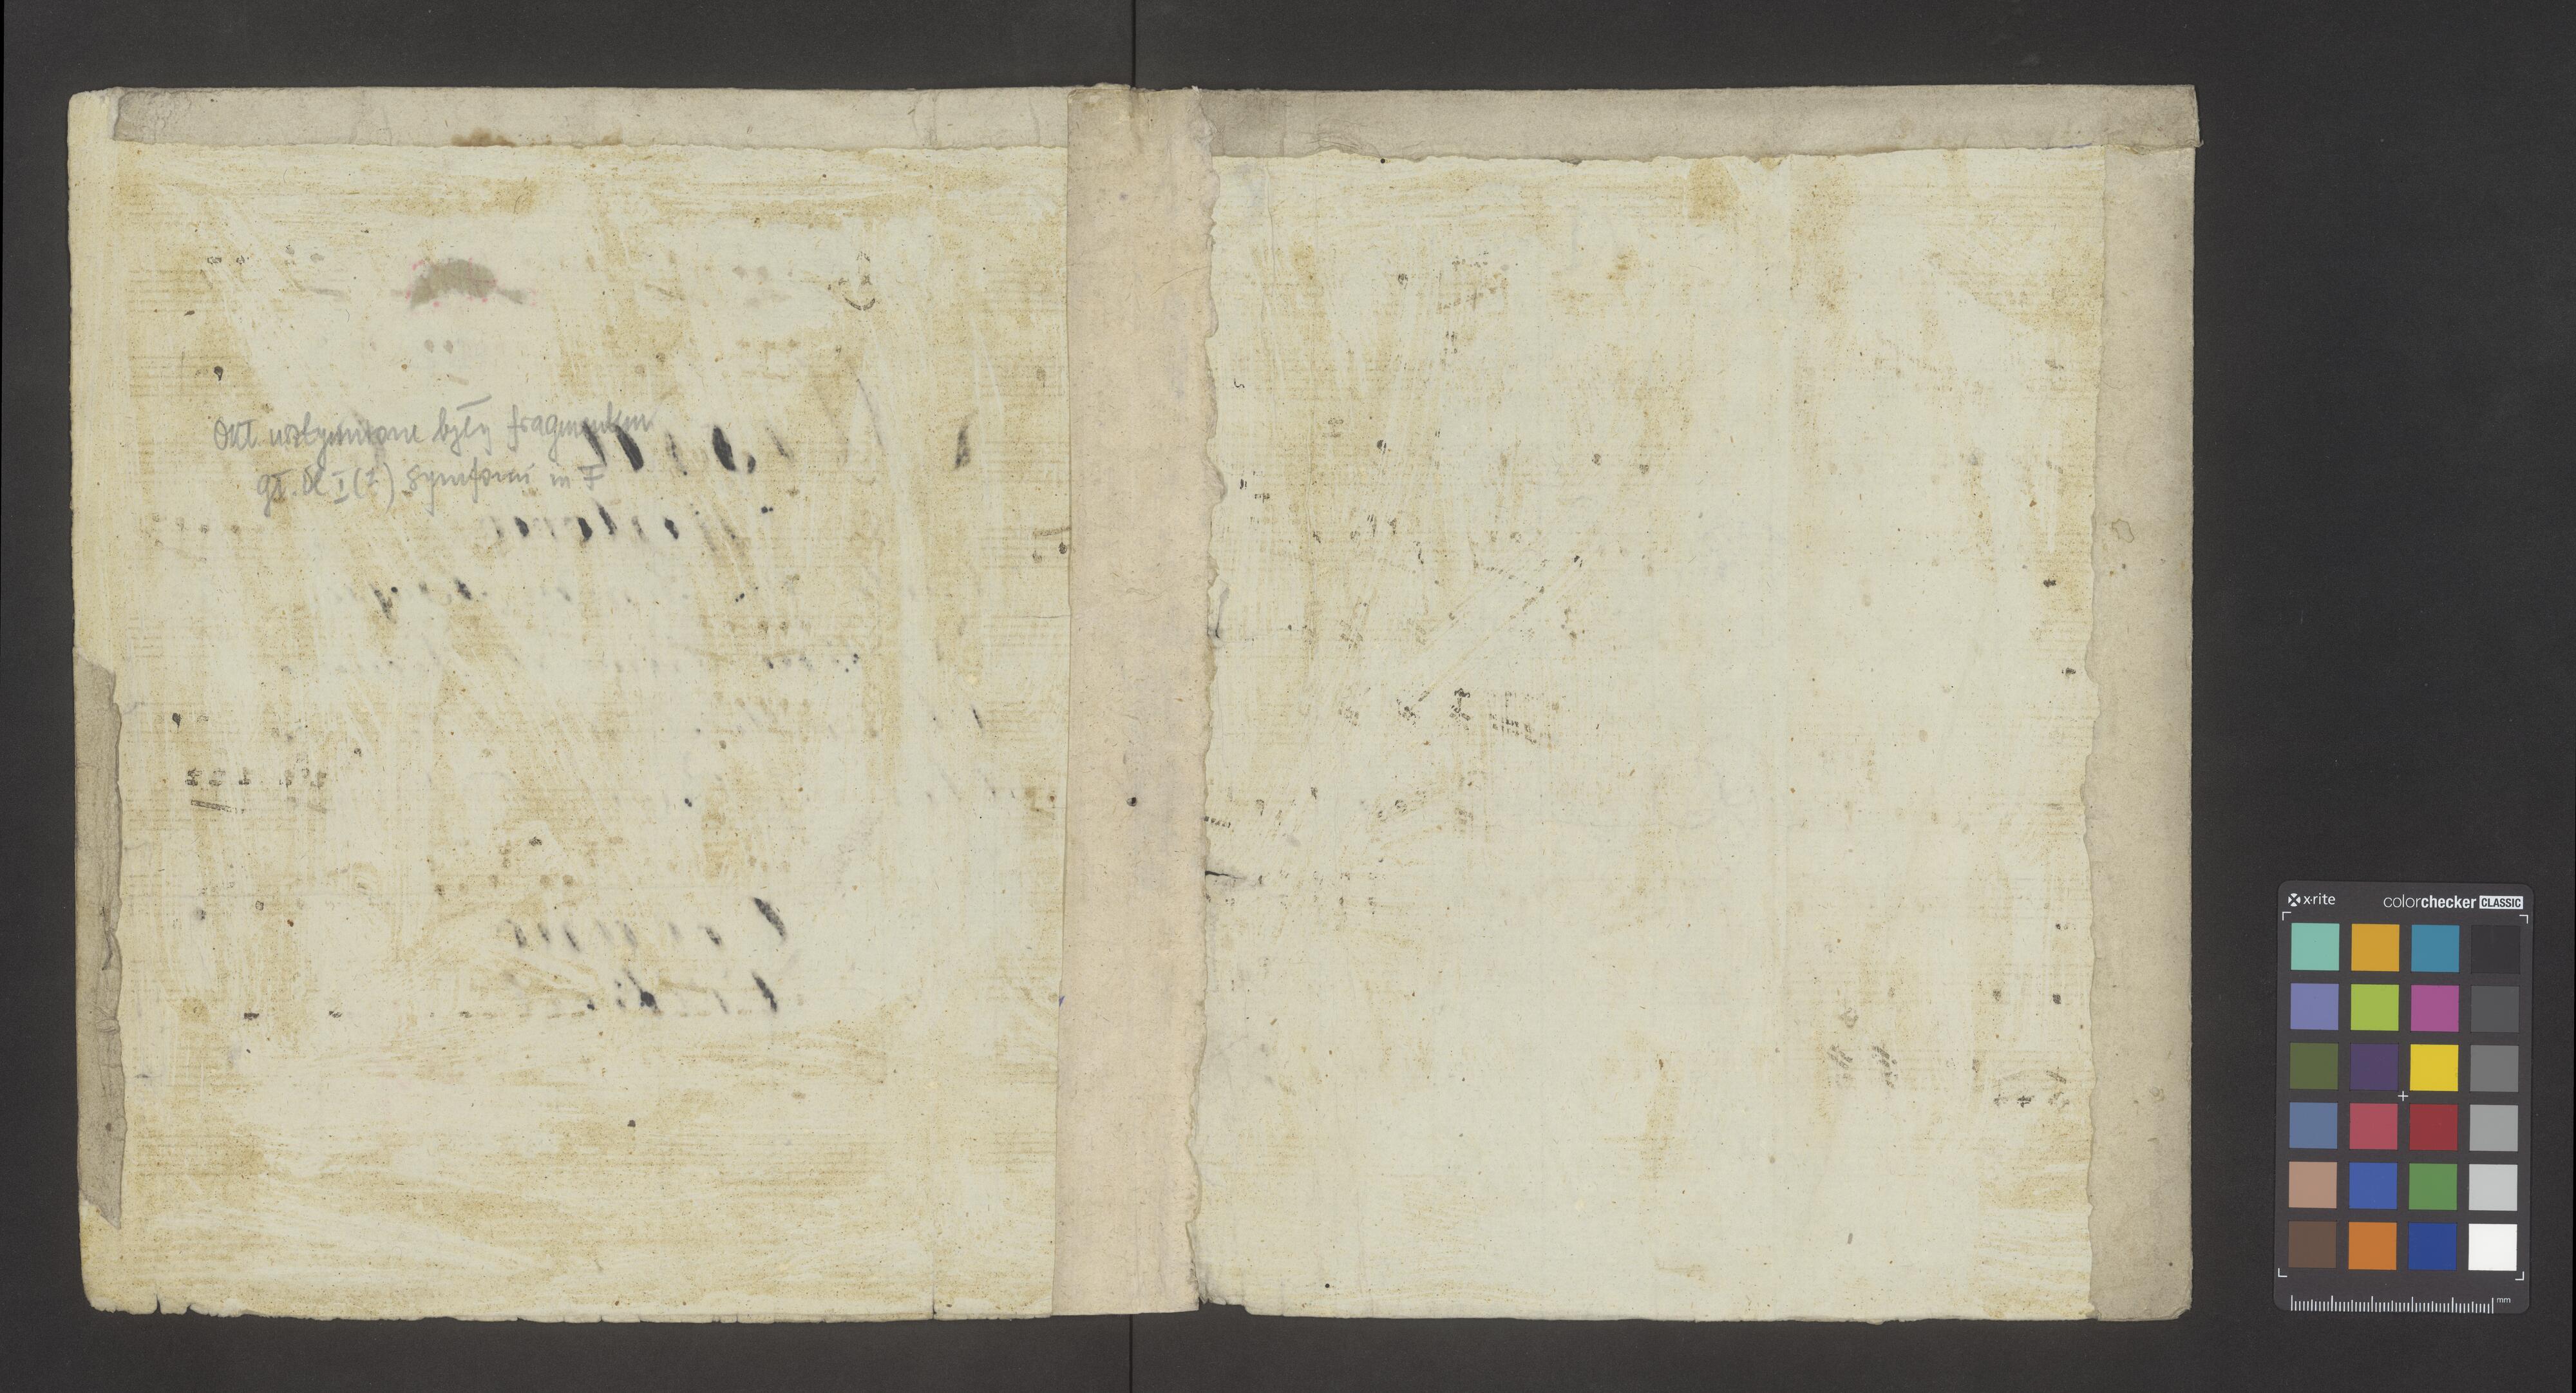 Okł. usztywnione były fragmentem
gł. Ob I (?) Symfonii in F
x-rite
colorchecker CLASSIC
mm